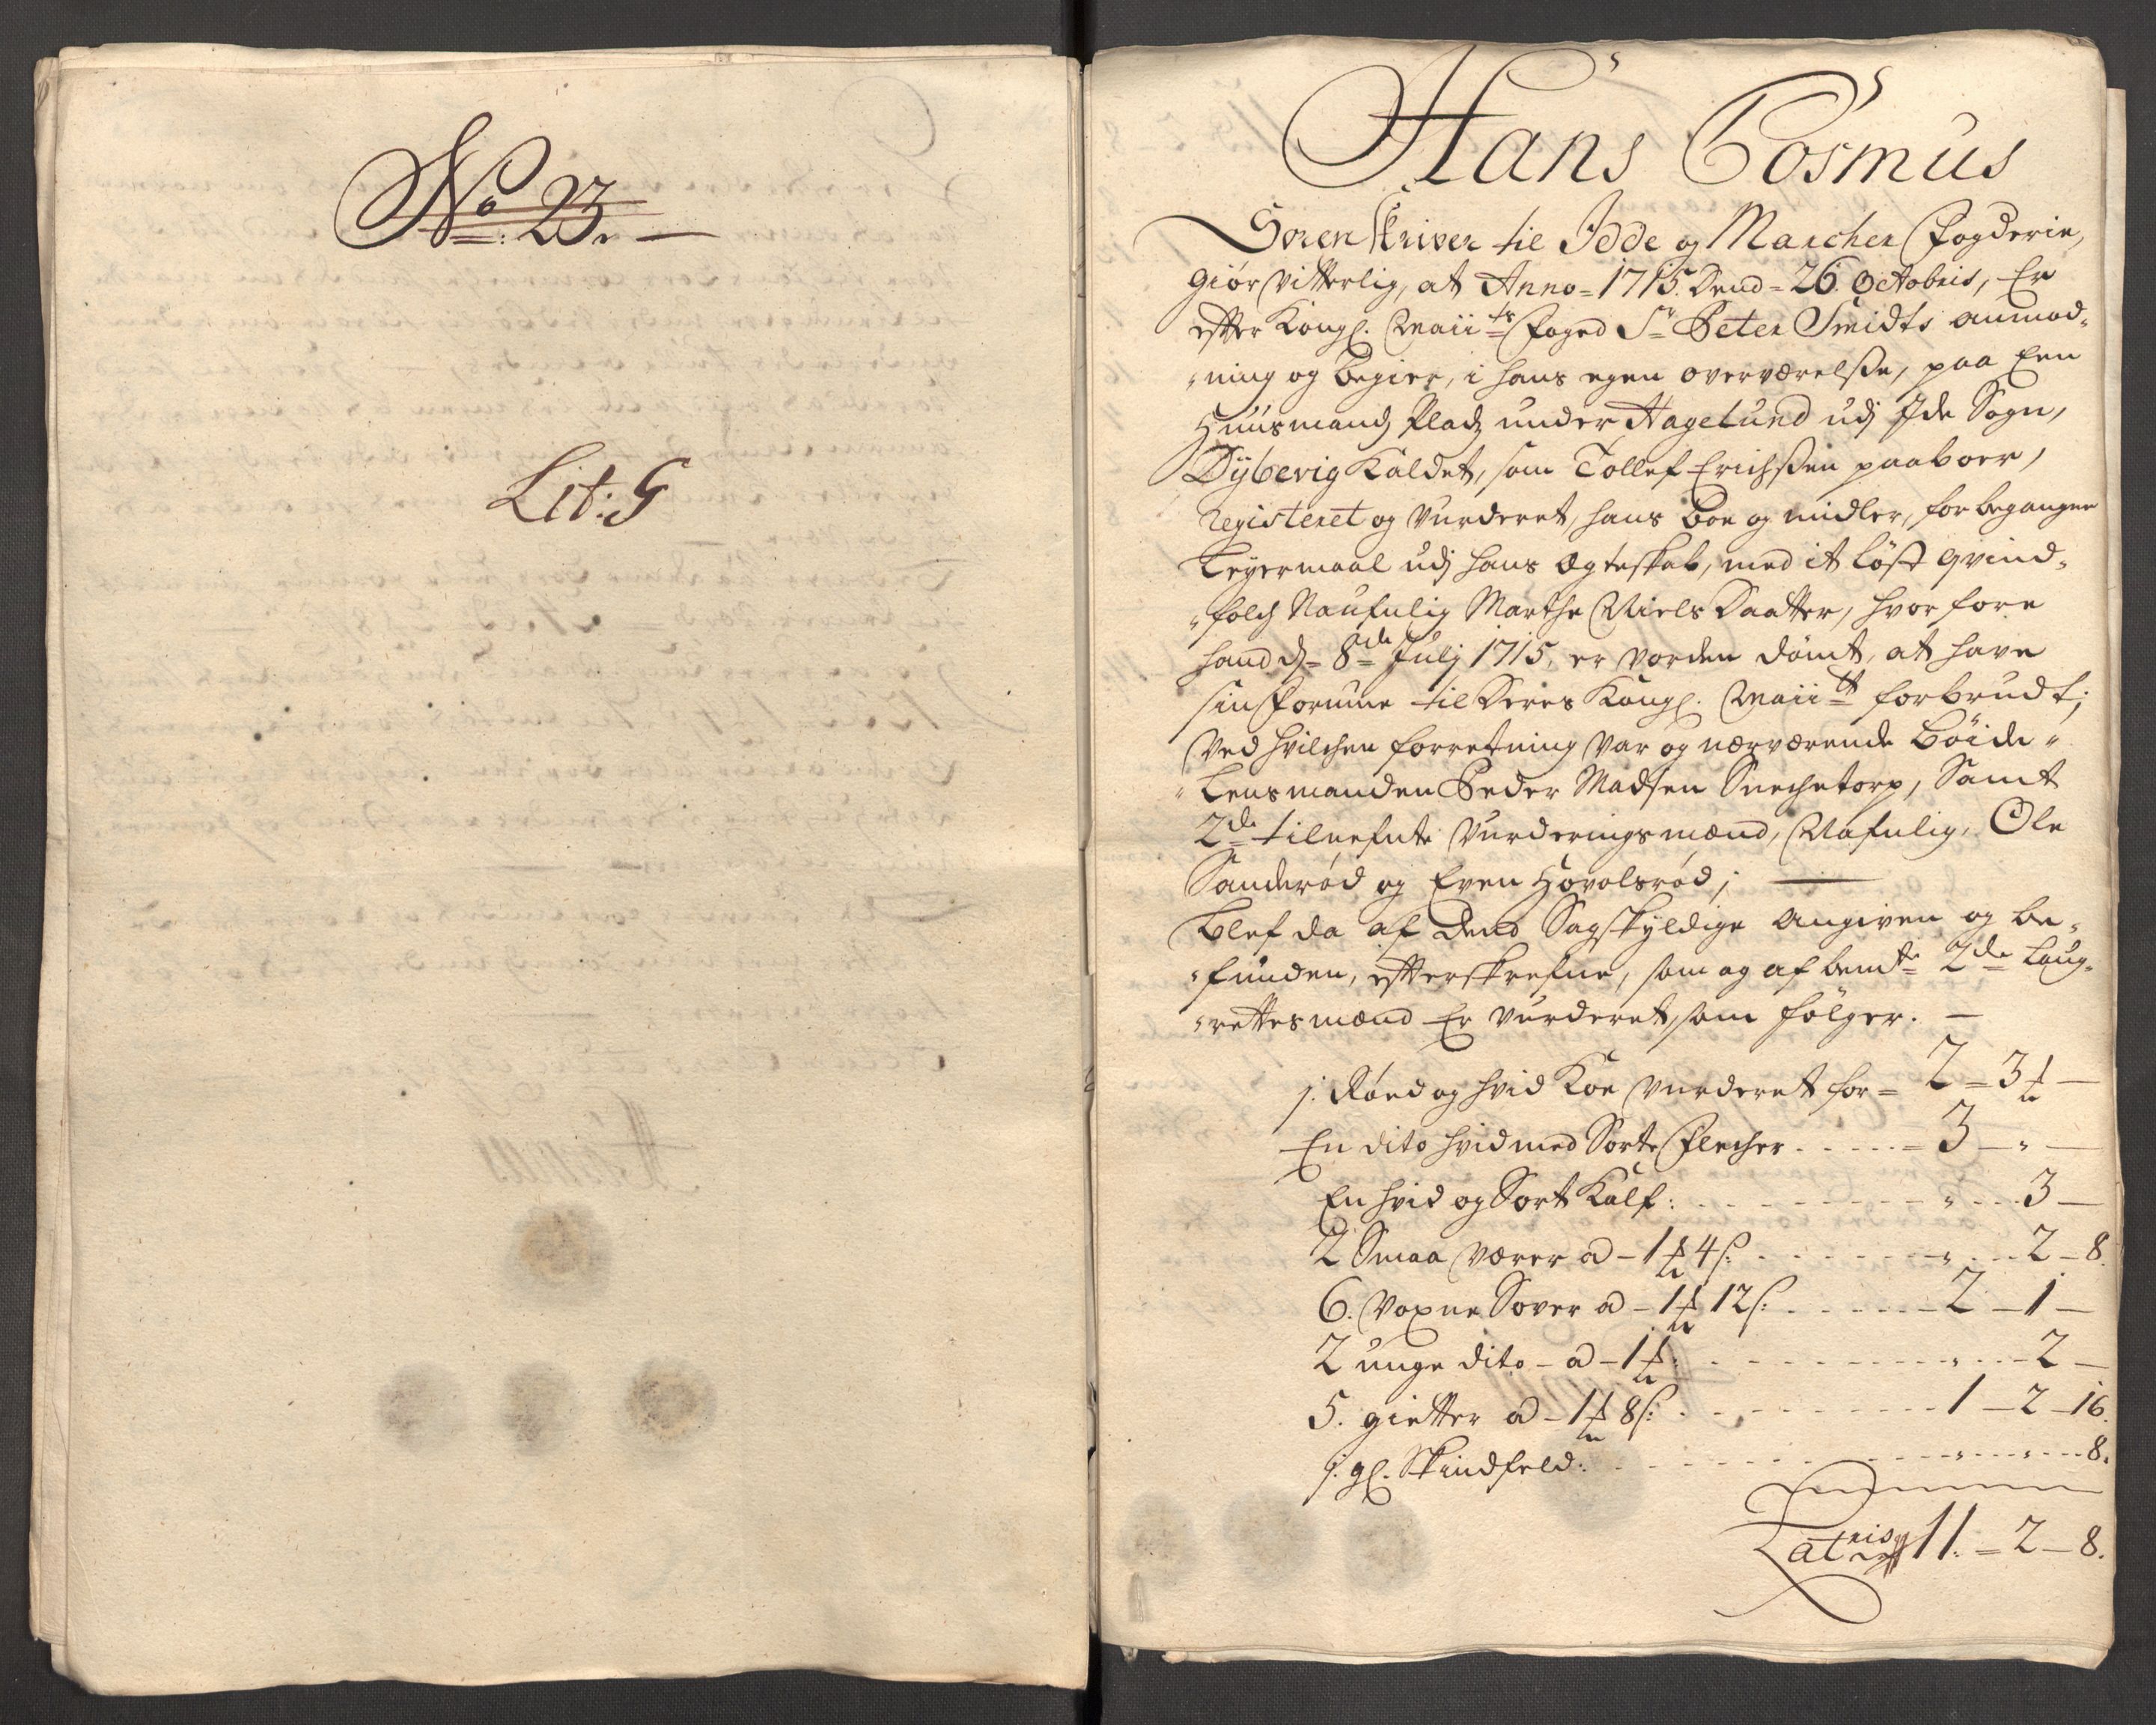 No: 23.
Lit: G
Hans Cosmus
Sorenskriver til Idde og Marcher Fogderie,
giör Vitterlig, at Anno = 1715. Dend = 26. Octobris, Er
efter Kongl. Maiits Foged Sr Peter Smidts anmod-
ning og begier, i hans egen overværelsße, paa Een
Huusmands Plads under Hagelund udj Ide Sogn,
Dybevig Kaldet, som Tollef Erichßen paaboer,
Registeret og Vurderet, hans boe og midler, for begangne
Leyermaal udj hans Ægteskab, med it löst qvind-
folch Naufnlig Marthe Niels Daatter, hvor fore
hand d= 8de Julj 1715, er vorden dömt, at have
sin Formue til Deres Kongl. Maiitt forbrudt;
Ved hvilchen forretning var og nærværende böide-
Lensmanden Peder Madsen Snechetorp, Samt
2de tilnefnte Vurderings mænd, Nafnlig, Ole
Sanderöd og Even Hovolsröd;
Blef da af Dend Sagskyldige angiven og be-
funden, efterskrefne, som og af bemte 2de Laug-
rettes mænd Er Vurderet, som fölger.
1. Röed og hvid Koe vurderet for = 2 = 3 ʒ —
En dito hvid med Sorte Flecher . . . . . = 3 — " —
En hvid og Sort Kalf: . . . . . " . . . 3 —
2 Smaa Værer a — 1 ʒ 4 s: . . . . . " . . . 2 — 8.
6. Voxne Sover a — 1 ʒ 12 s: . . . . . 2 — 1 —
2 unge dito — a — 1 ʒ: . . . . . " . . . 2 —
5. gietter a — 1 ʒ 8 s: . . . . . 1 — 2 — 16.
1. gl. Skindfeld: . . . . . " . . . " . . . 8.
Latris 11. = 2 — 8.